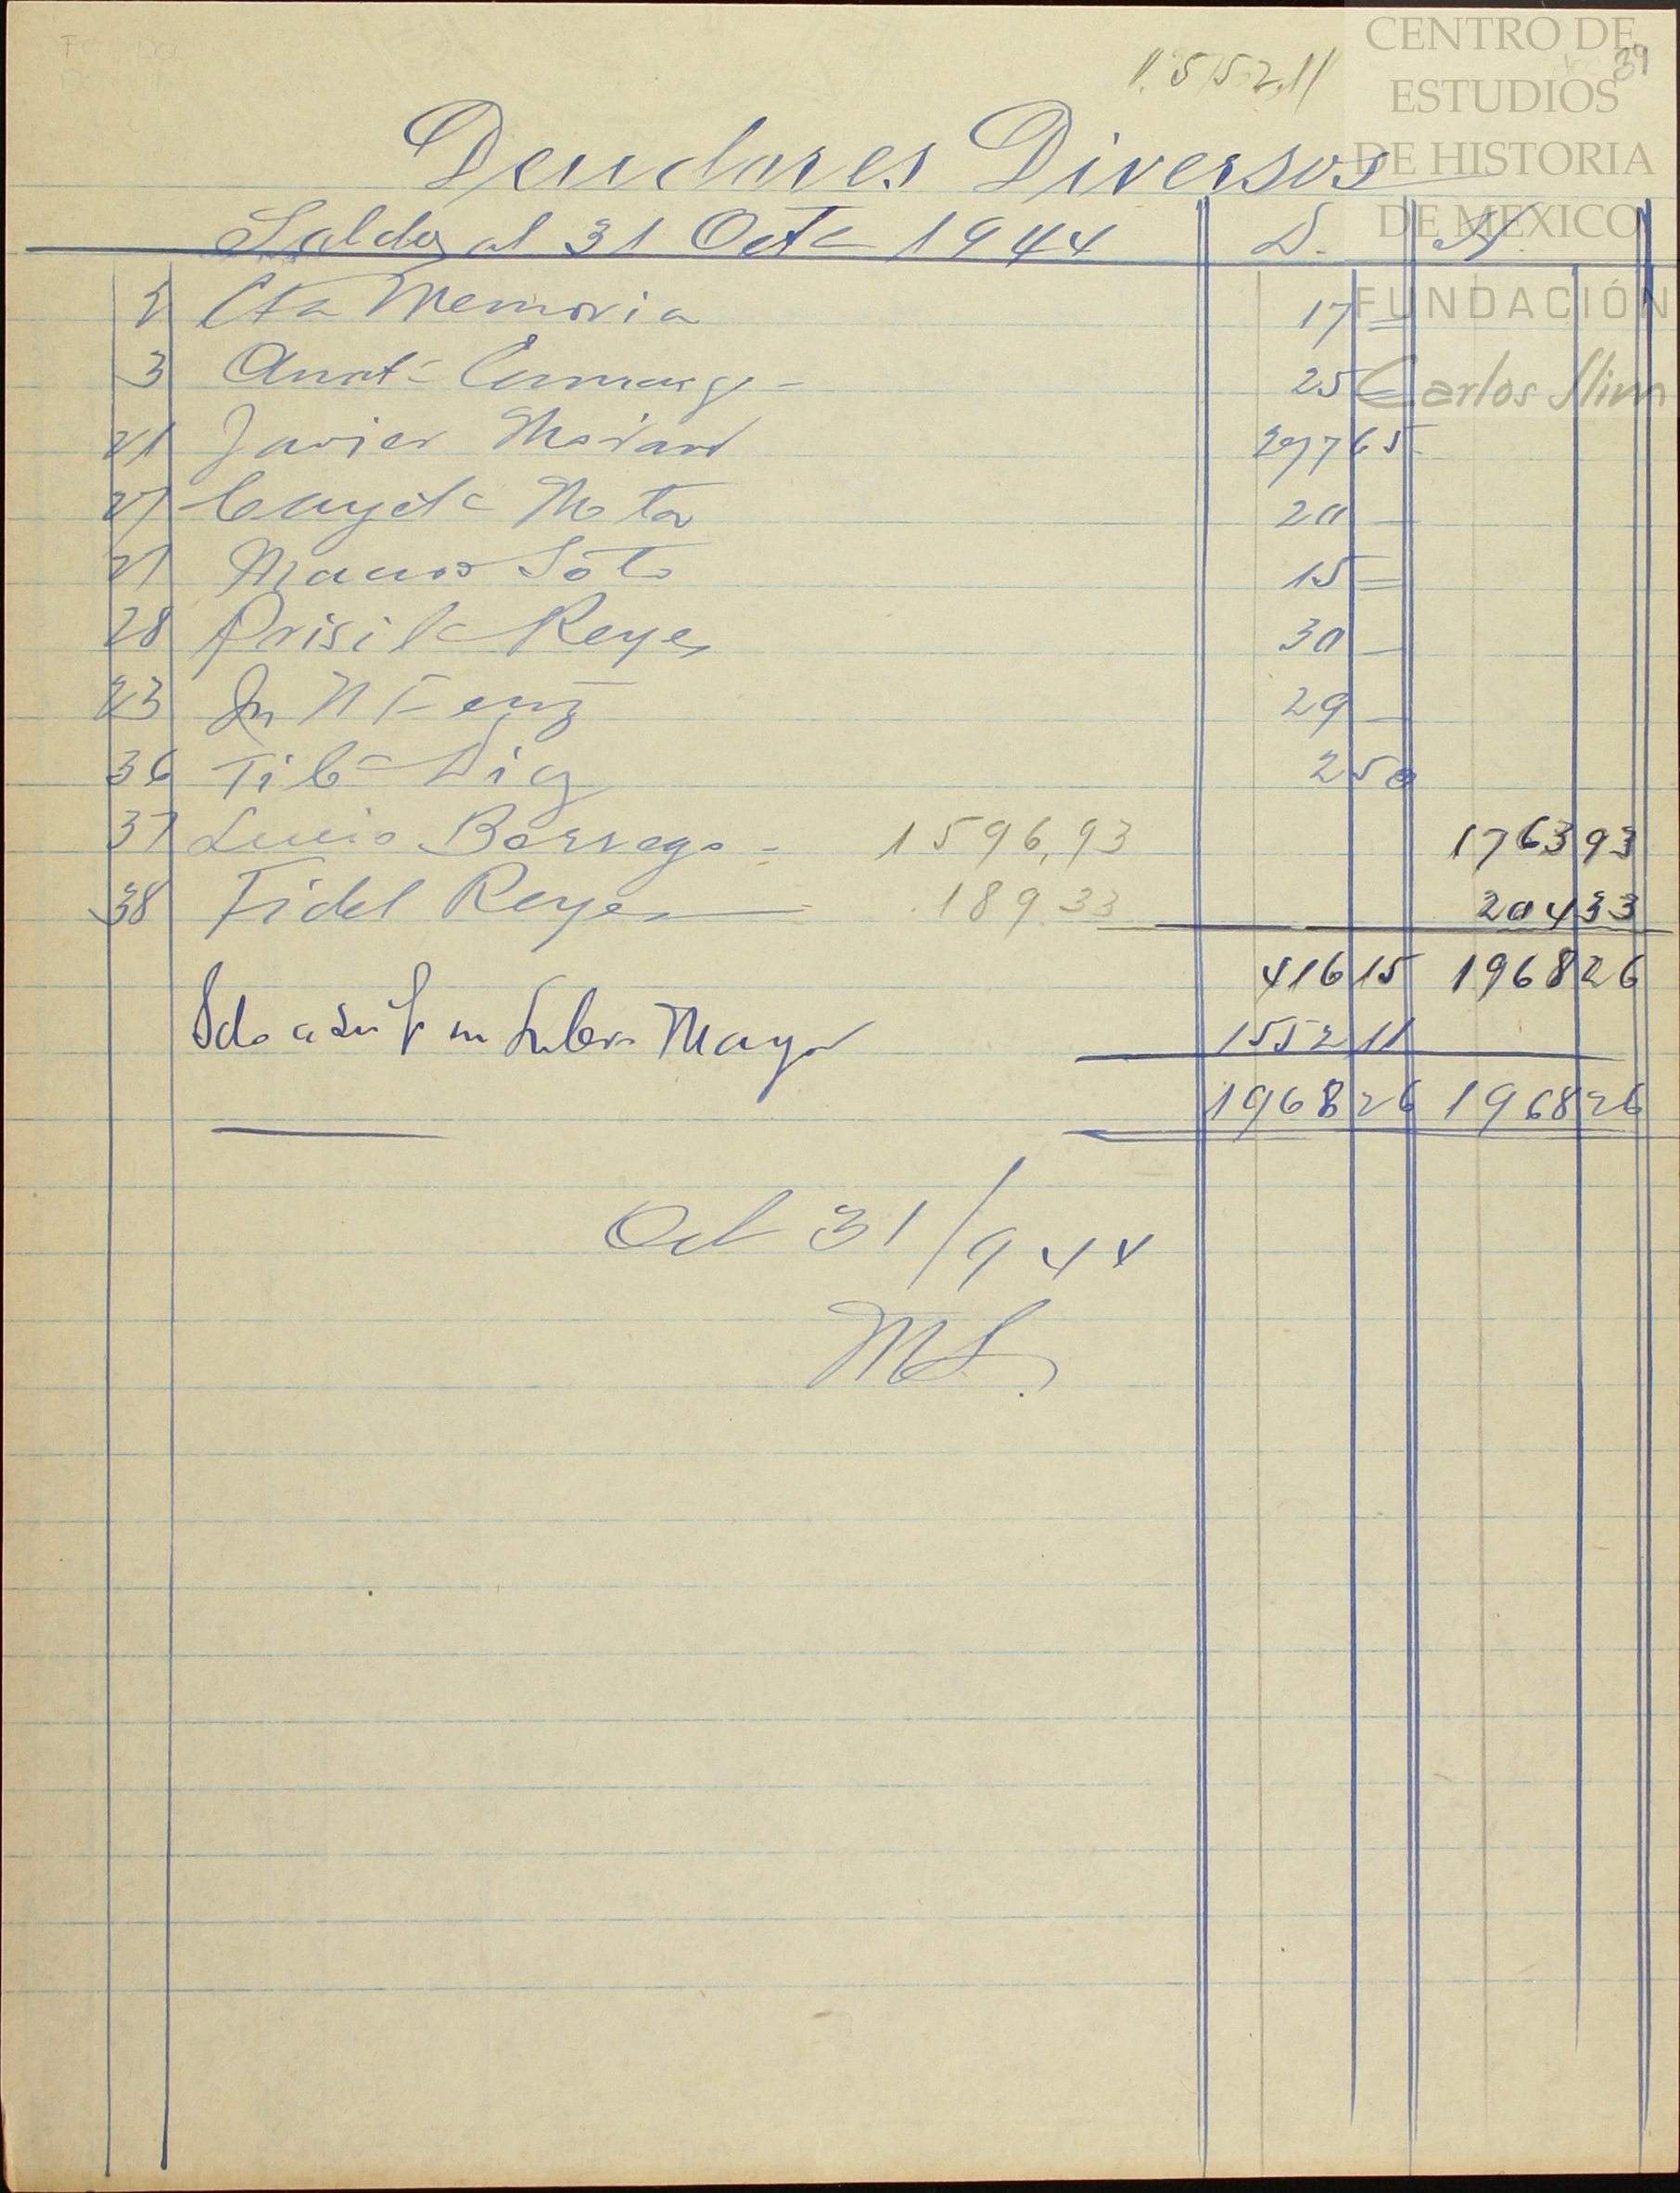 CENTRO DE
ESTUDIOS
DE HISTORIA
DE MEXICO
FUNDACIÓN
Carlos Slim
39
1.552.11
Deudores Diversos
Saldos al 31 Octe 1944 D. H.
2 Cta Memoria 17 =
3 25 =
21 Javier 277 65
27 Mota 20 —
21 Soto 15 =
28 Prisila Reyes 30 —
23 29 —
36 2 50
37 Lucio Borrego - 1596,93 1763 93
38 Fidel Reyes 189 33 204 33
416 15 1968 26
Sdo a su f en Libro Mayor 1552 11
1968 26 1968 26
Oct 31/944
MS.